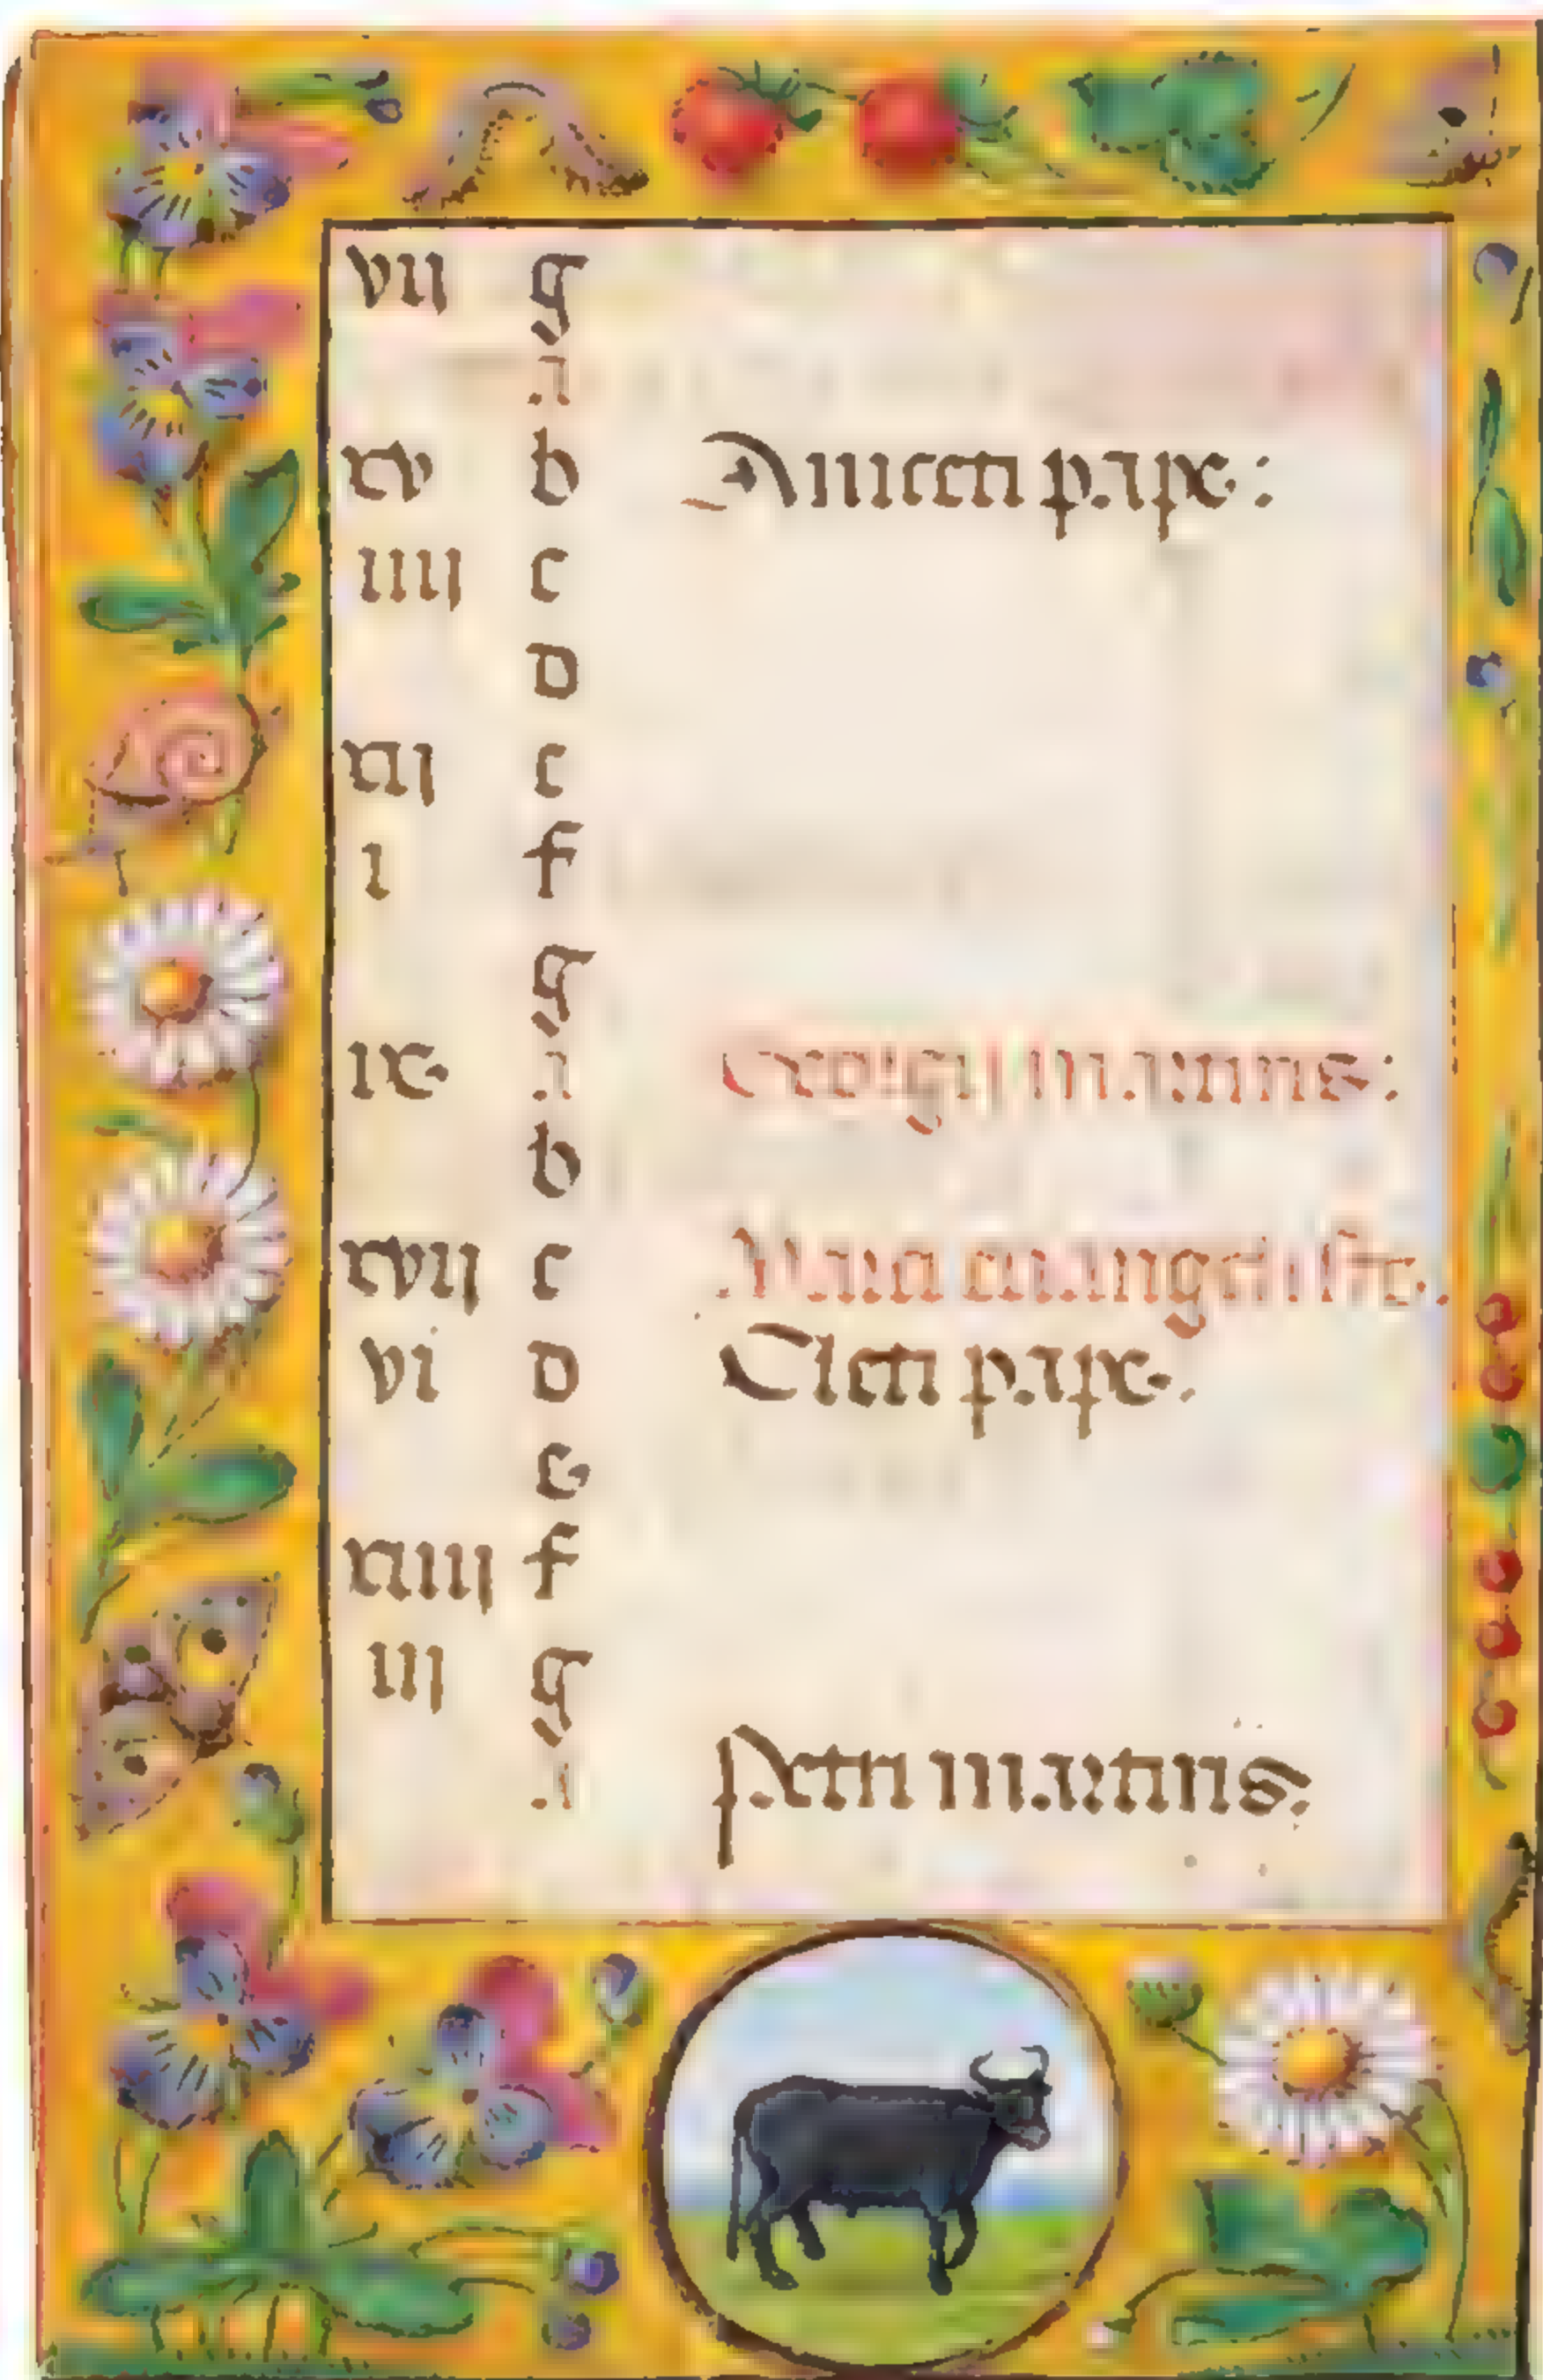 vii g
a
xv b Aniceti pape:
iiii c
d
xii e
i f
g
ix a Georgij martiris:
b
xvii c Marci euangeliste.
vi d Cleti pape.
e
xiiii f
iii g
a Petri martiris: